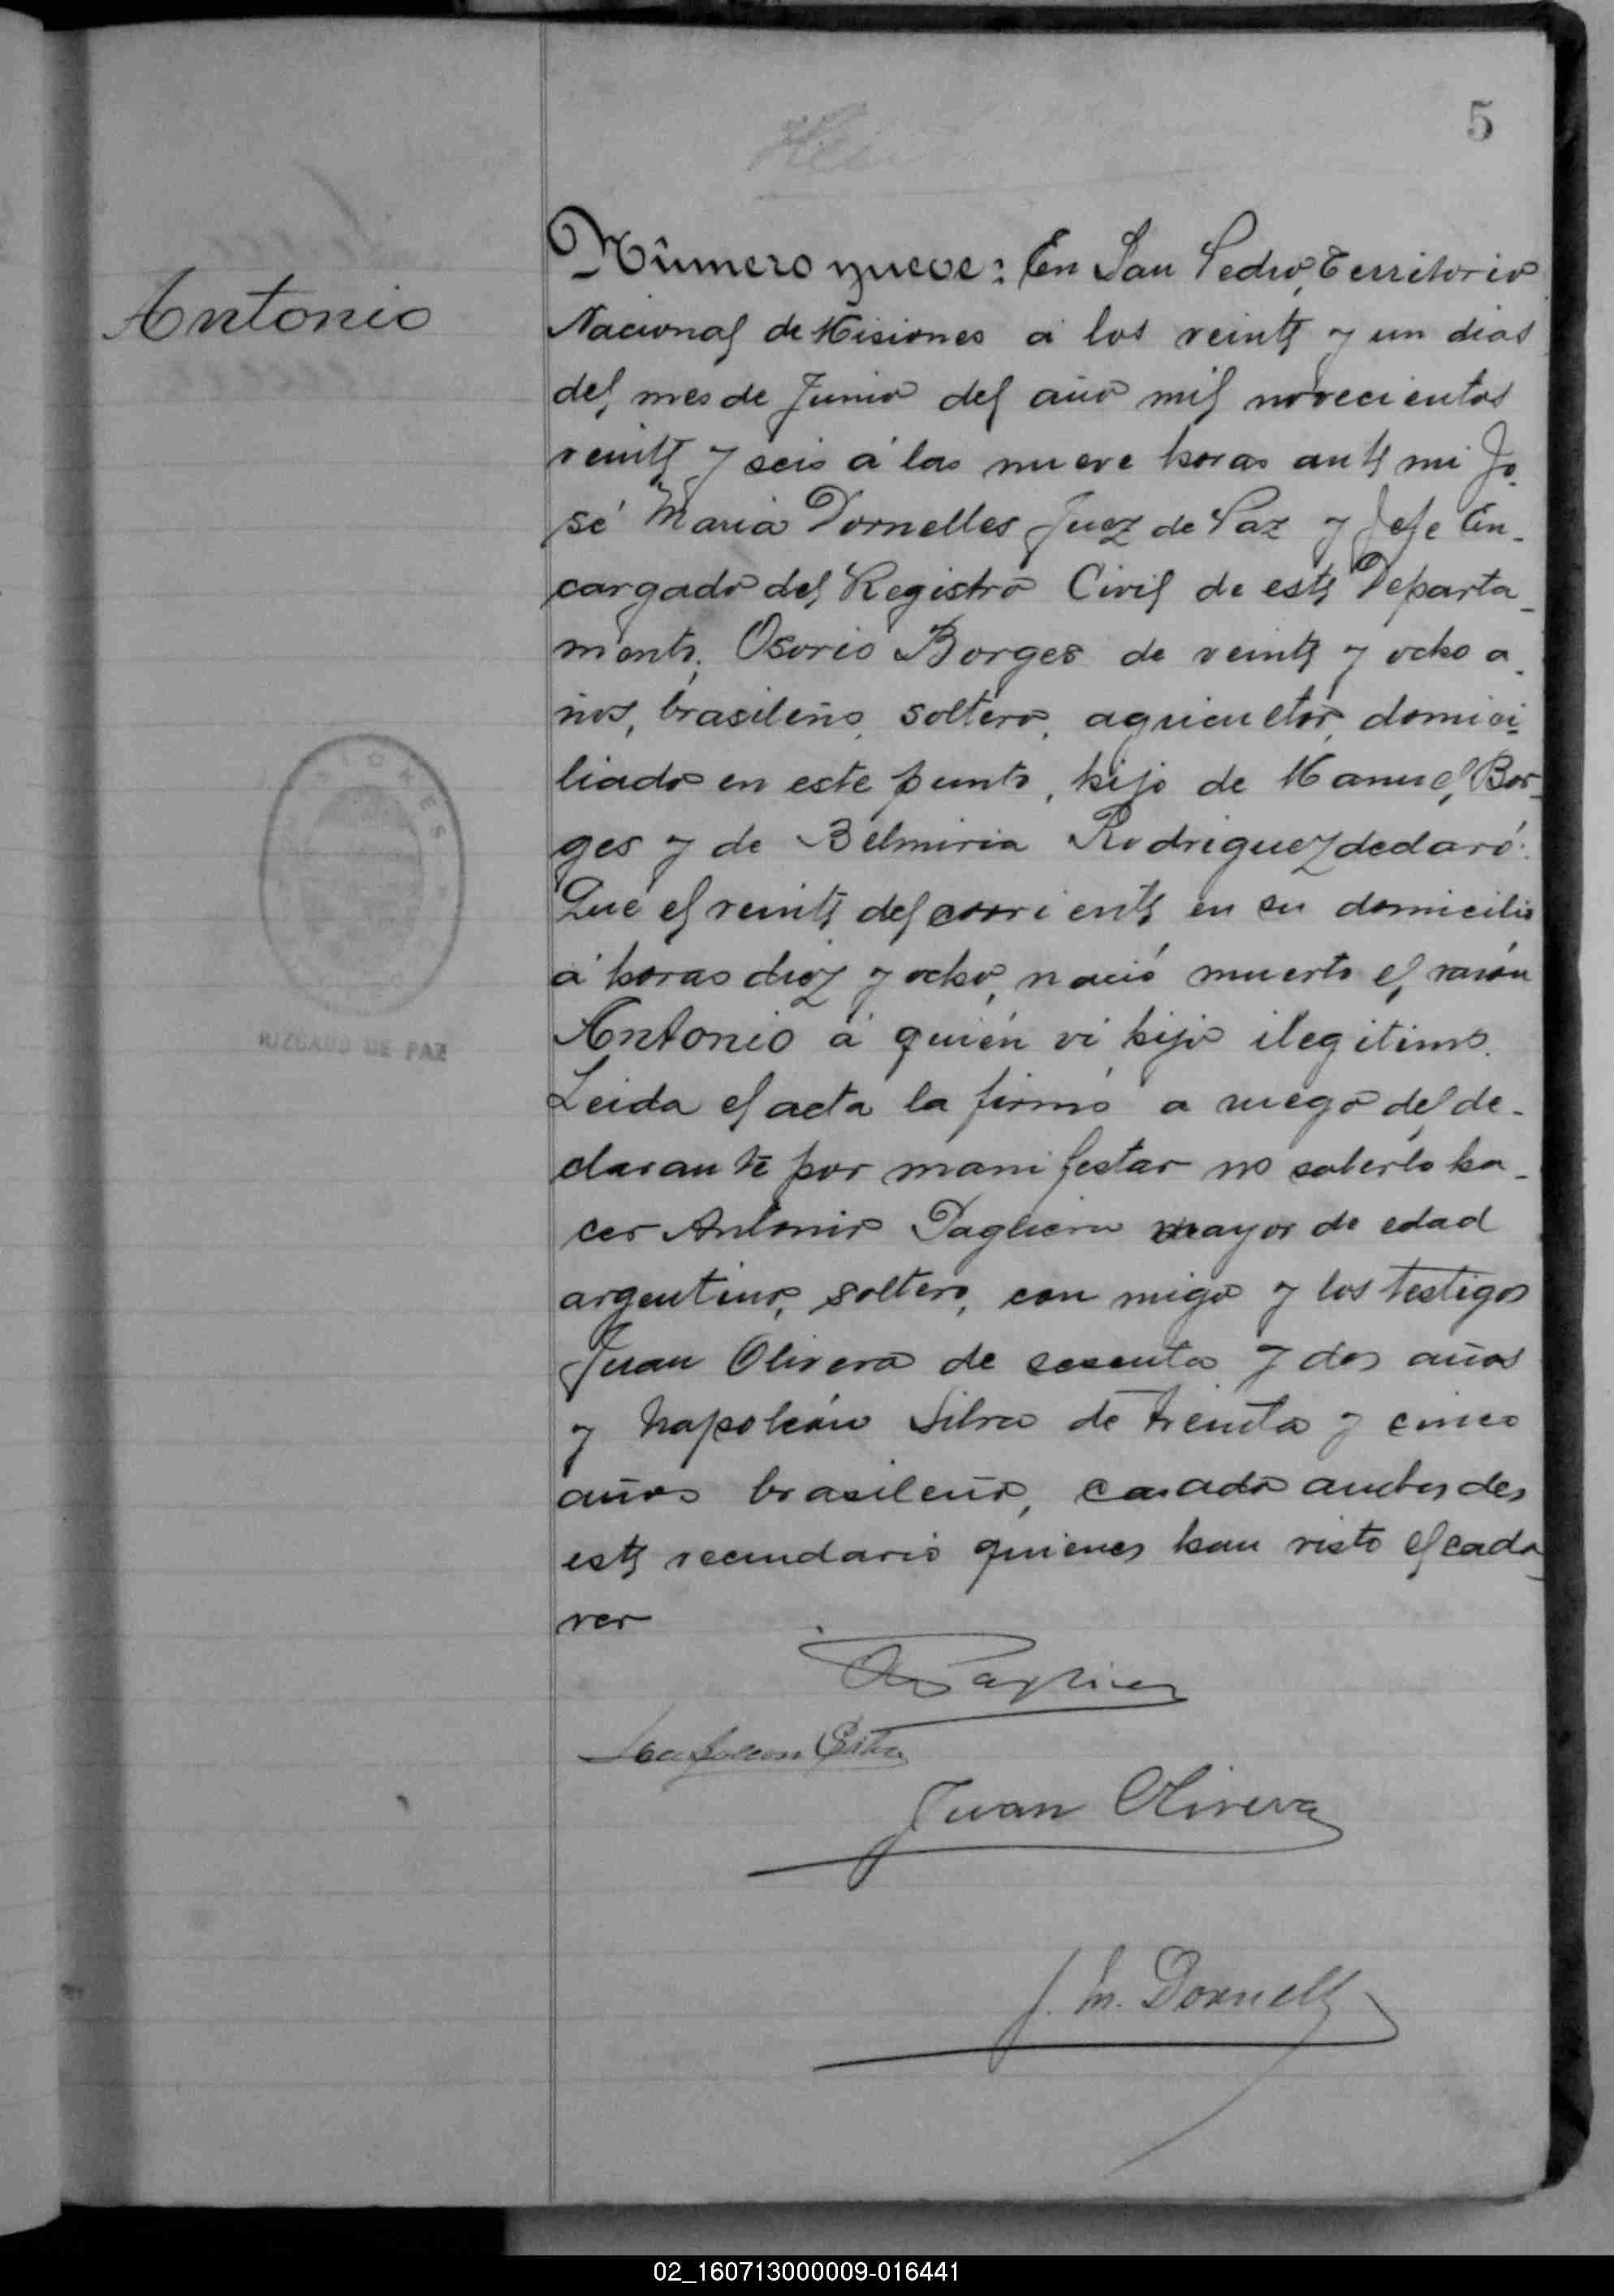 5
Antonio
Número nueve: En San Pedro, Territorio
Nacional de Misiones a los veinte y un dias
del mes de Junio del año mil novecientos
veinte y seis á las nueve horas ante mi Jo-
sé Maria Dornelles Juez de Paz y Jefe En-
cargado del Registro Civil de este Departa-
mento, Osorio Borges de veinte y ocho a-
ños, brasileño, soltero, agricultor, domici-
liado en este punto, hijo de Manuel Bor-
ges y de Belmiria Rodriguez declaró:
Que el veinte del corriente en su domicilio
á horas diez y ocho, nació muerto el varón
Antonio á quién vi hijo ilegitimo.
Leida el acta la firmó a ruego del de-
clarante por manifestar no saberlo ha-
cer Antonio Pagliera mayor de edad
argentino, soltero, con migo y los testigos
Juan Olivera de sesenta y dos años
y Napoleón Silva de treinta y cinco
años brasileño, casado ambos de,
este vecindario quienes han visto el cada-
ver
Napoleon Silva
Juan Olivera
J. M. Dornelles
MISIONES
JUZGADO DE PAZ
02_160713000009-016441